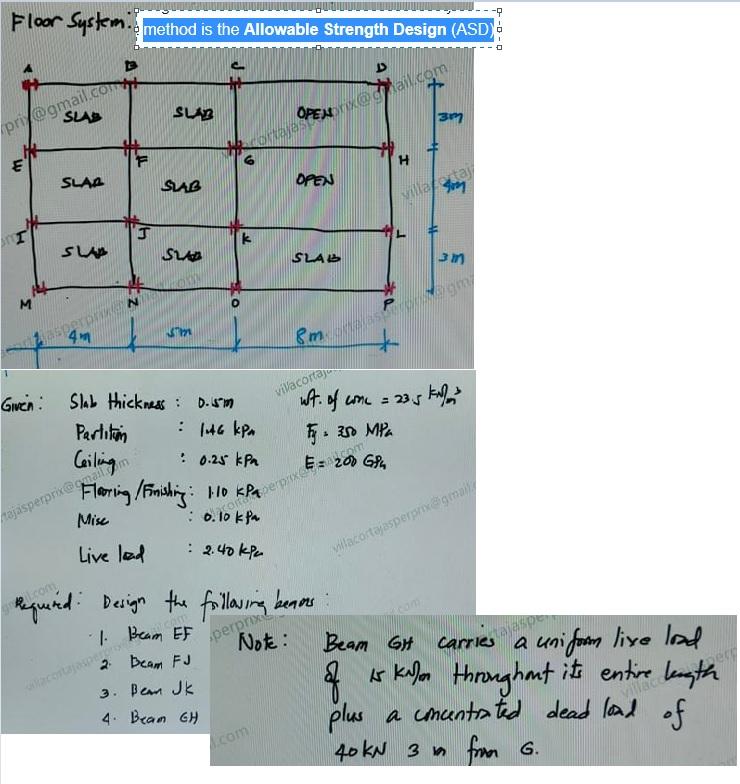 Floor System:
method is the Allowable Strength Design (ASD)
A B C D
SLAB SLAB OPEN 3m
E F G H
SLAB SLAB OPEN 4m
I J K L
SLAB SLAB SLAB 3m
M N O P
4m 5m 8m
Given: Slab thickness : 0.15m wt. of conc = 23.5 kN/m³
Partition : 1.46 kPa Fy = 350 MPa
Ceiling : 0.25 kPa E = 200 GPa
Flooring/Finishing : 1.10 kPa
Misc : 0.10 kPa
Live load : 2.40 kPa
Required: Design the following beams:
1. Beam EF
2. Beam FJ
3. Beam JK
4. Beam GH
Note: Beam GH carries a uniform live load
of 15 kN/m throughout its entire length
plus a concentrated dead load of
40 kN 3 m from G.